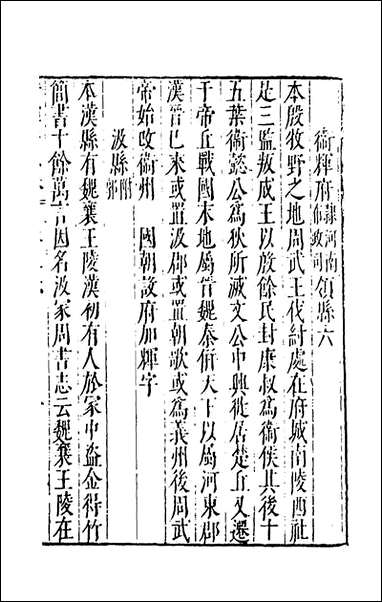 衛輝府隸河南布政司領縣六
本殷牧野之地周武王伐紂處在府城南陵酉社
是三監叛成王以殷餘民封康叔為衛侯其後十
五葉衛懿公為狄所滅文公中興徙居楚丘又遷
于帝丘戰國末地屬晉魏秦併天下以屬河東郡
漢晉已來或置汲郡或置朝歌或為義州後周武
帝始改衛州　國朝設府加輝字
汲縣附郭
本漢縣有魏襄王陵漢初有人於冢中盜金得竹
簡書十餘萬言因名汲冢周書志云魏襄王陵在